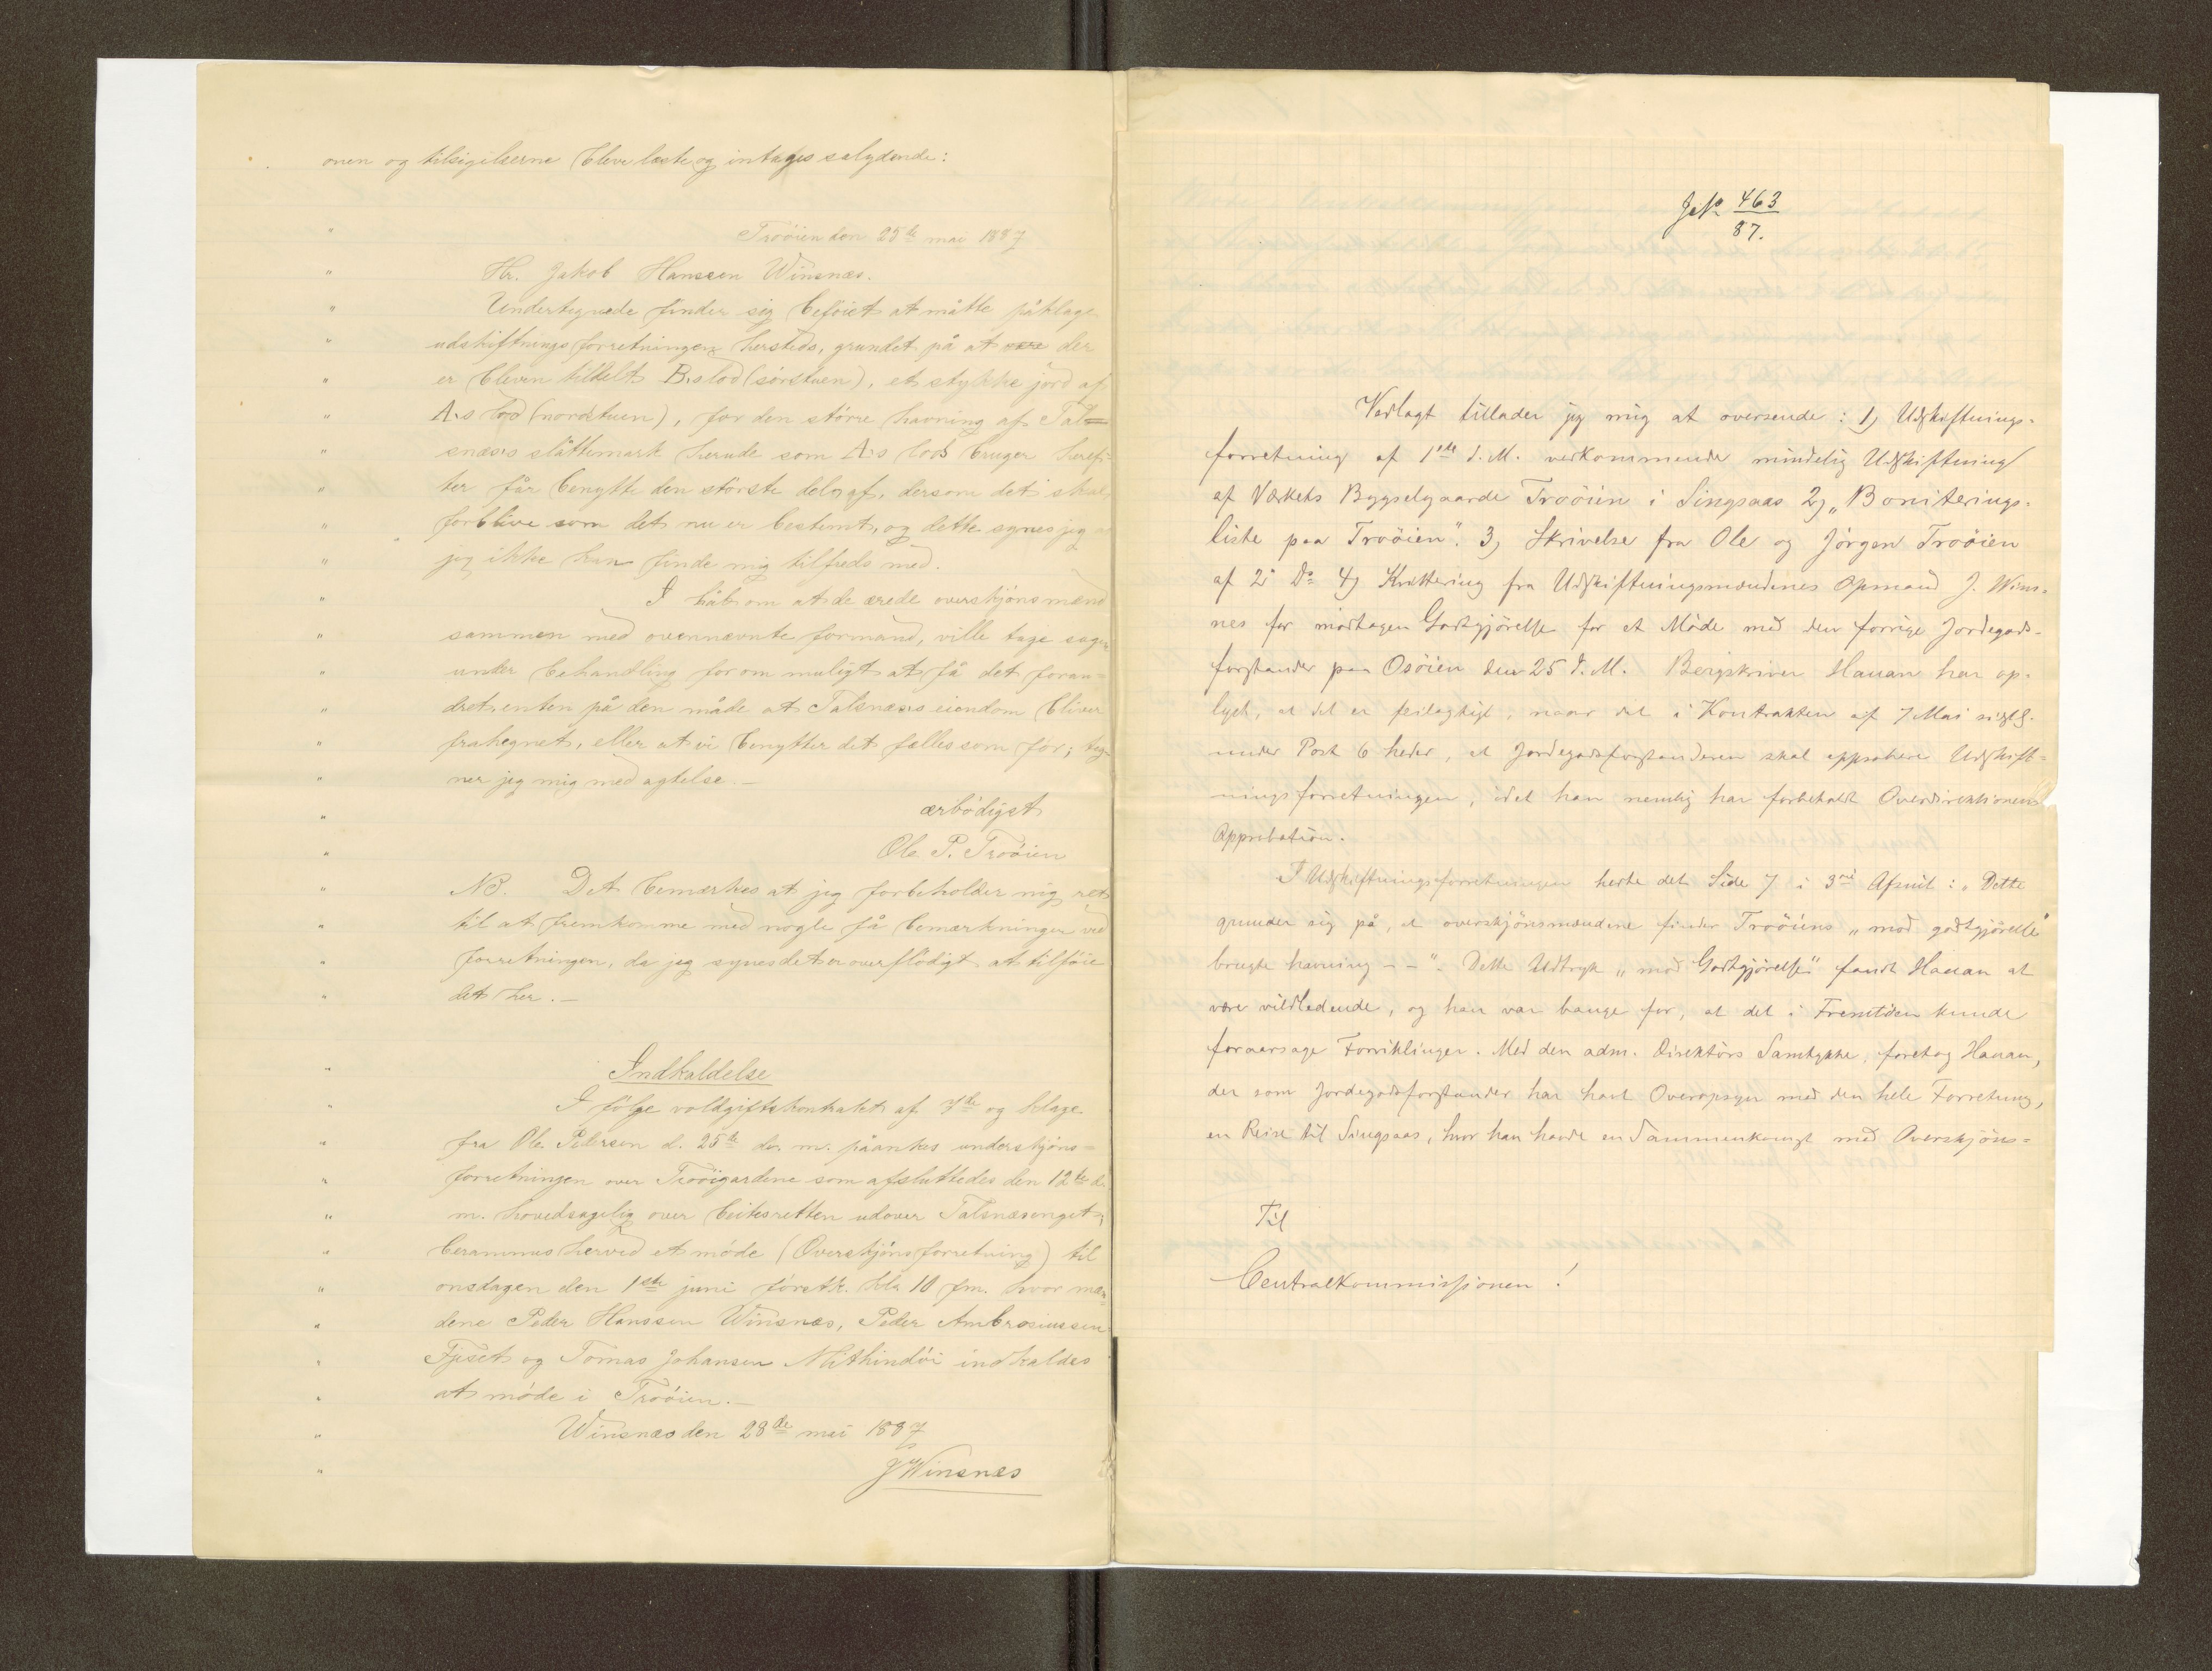 onen og tilsigilserne bleve læste og intages salydende:
" Troöien den 25de mai 1887
" Hr. Jakob Hanssen Winsnæs.
" Undertegnede finder sig beföiet at måtte påklage
" udskiftningsforretningen hersteds, grundet på at der
" er bleven tildelt B.s lod (sörstuen), et stykke jord af
" A.s lod (nordstuen), for den större havning af Tal=
" snæs's slåttemark herude som A.s lod bruger heref-
" ter får benytte den störste del af, dersom det skal
" forblive som det nu er bestemt, og dette synes jeg
" jeg ikke kan finde mig tilfreds med.
" I håb om at de ærede overskjönsmænd
" sammen med overnævnte formand, ville tage sagen
" under behandling for om muligt at få det foran=
" dret, enten på den måde at Talsnæs's eiendom bliver
" frahegnet, eller at vi benytter det fælles som för; teg-
" ner jeg mig med agtelse. —
" ærbödigst
" Ole P. Troöien
" NB. Det bemærkes at jeg forbeholder mig ret
" til at fremkomme med nogle få bemærkninger ved
" forretningen, da jeg synes det er overflödigt at tilföie
" det her. —
" Indkaldelse
" I fölge voldgiftskontrakt af 7de og klage
" fra Ole Pedersen d. 25de ds. m. påankes underskjöns=
" forretningen over Troöigardene som afsluttedes den 12te ds.
" m. hovedsagelig over beitesretten udover Talsnæsenget,
" berammes herved et möde (Overskjönsforretning) til
" onsdagen den 1ste juni förstk. kl. 10 fm. hvor mæn=
" dene Peder Hanssen Winsnæs, Peder Ambrosiussen
" Fjeset og Tomas Johansen indkaldes
" at möde i Troöien. —
" Winsnæs den 28de mai 1887
" JWinsnæs
JNo 463
87.
Vedlagt tillader jeg mig at oversende: 1) Udskiftnings-
forretning af 1ste d.M. vedkommende mindelig Udskiftning
af Værkets Bygselgaarde Troöien i Singsaas 2) „Boniterings-
liste paa Troöien". 3) Skrivelse fra Ole og Jörgen Troöien
af 2. Do 4) Kvittering fra Udskiftningsmændenes Opmand J. Wins-
nes for modtagen Godtgjörelse for et Möde med den forrige Jordegods-
forstander paa Osöien den 25 d.M. Bergskriver Hauan har op-
lyst, at det er feilagtigt, naar det i Kontrakten af 7 Mai
under Post 6 heder, at Jordegodsforstanderen skal approbere Udskift-
ningsforretningen, idet han nemlig har forbeholdt Overdirektionens
Approbation.
I Udskiftningsforretningen hedte det Side 7 i 3die Afsnit: „Dette
grunder sig på, at overskjönsmændene finder Troöiens „mod godtgjörelse"
brugte havning – –". Dette Udtryk „mod Godtgjörelse" fandt Hauan at
være vildledende, og han var bange for, at det i Fremtiden kunde
foraarsage Forviklinger. Med den adm. Direktörs Samtykke, foretog Hauan,
der som Jordegodsforstander har havt Overopsyn med den hele Forretning,
en Reise til Singsaas, hvor han havde en Sammenkomst med Overskjöns=
Til
Centralkommissionen!